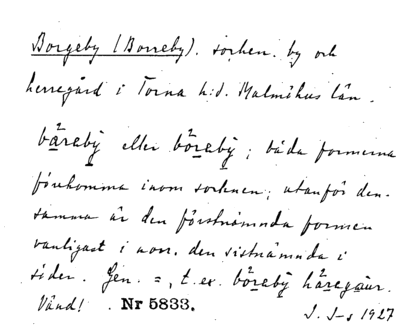 Borgeby (Borreby). socken. by och
herregård i Torna h:d. Malmöhus län.
bå̈reby̆ eller bö̆reby̆; båda formerna
förekomma inom socknen; utanför den-
samma är den förstnämnda formen
vanligast i norr. den sistnämnda i
söder. Gen. =, t. ex. böreby häregaur.
Vänd! . Nr 5833. J. J-s 1927